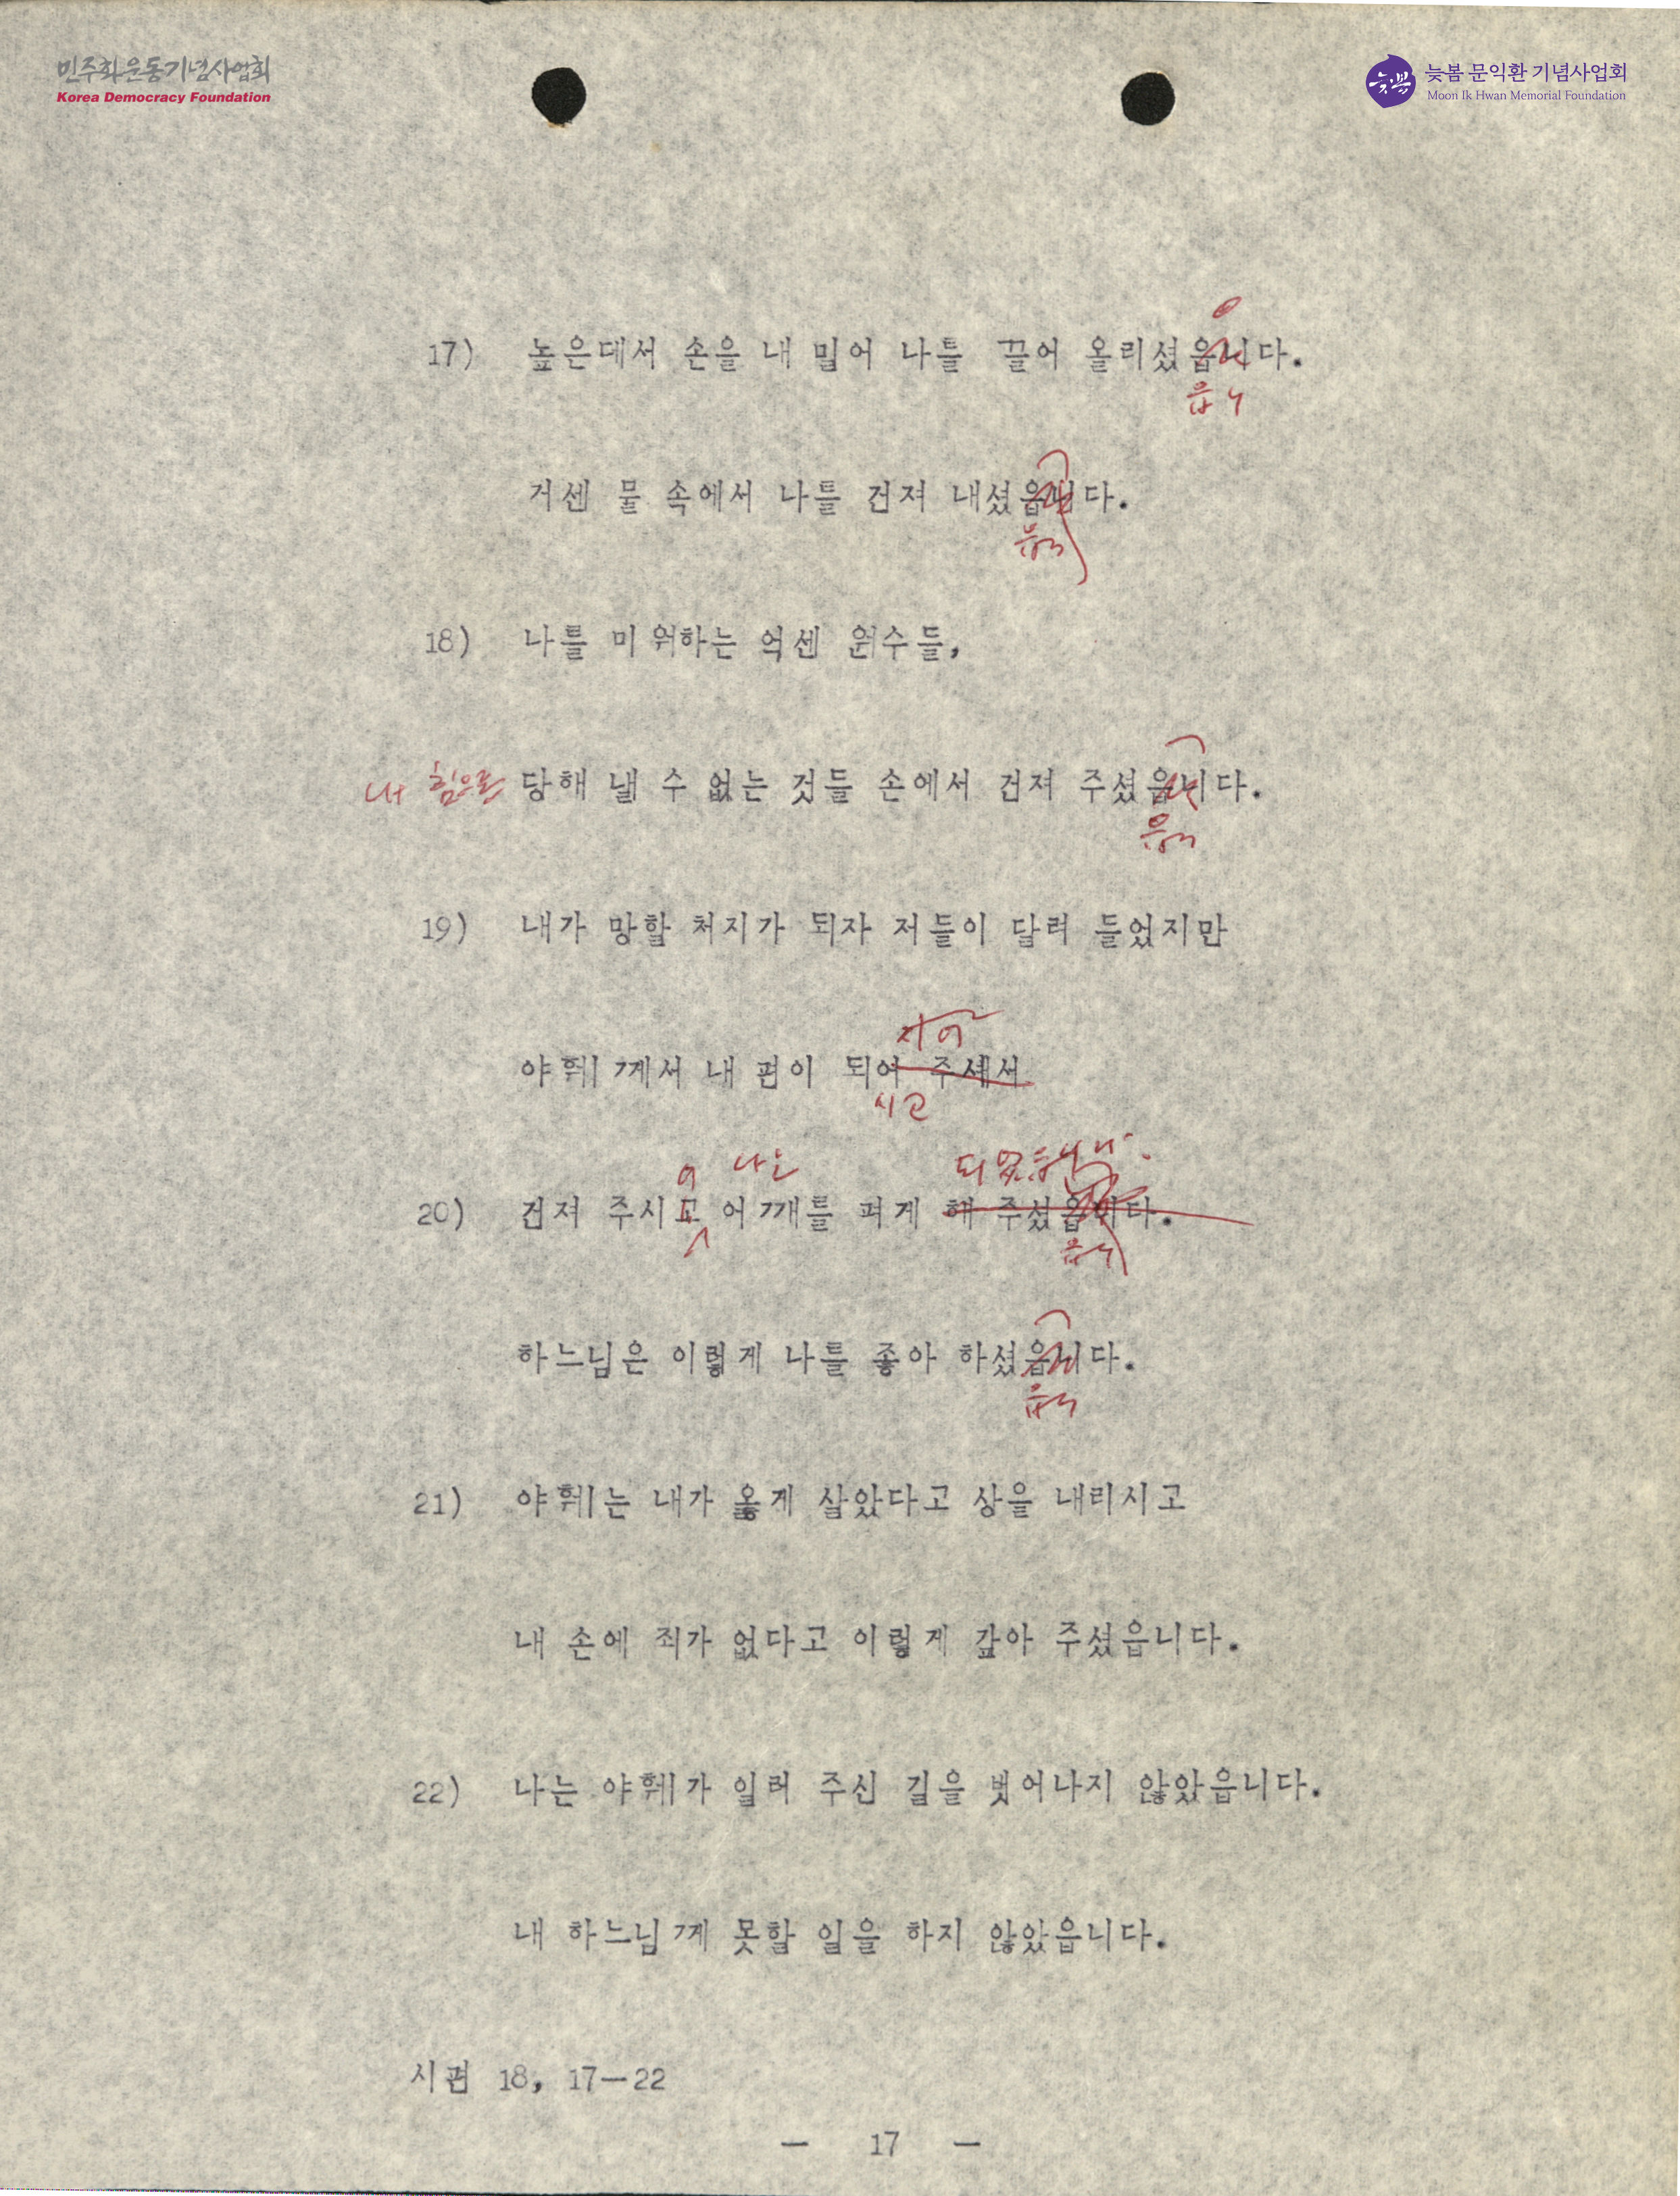 민주화운동기념사업회
Korea Democracy Foundation
늦봄
늦봄 문익환 기념사업회
Moon Ik Hwan Memorial Foundation
17) 높은데서 손을 내 밀어 나를 끌어 올리셨읍니다.
읍니
거센 물 속에서 나를 건져 내셨읍니다.
읍니
18) 나를 미워하는 억센 원수들,
내 힘으론 당해 낼 수 없는 것들 손에서 건져 주셨읍니다.
읍니
19) 내가 망할 처지가 되자 저들이 달려 들었지만
야훼께서 내 편이 되어 주셔서
시고
어 나는 되었읍니다.
20) 건져 주시고 어깨를 펴게 해 주셨읍니다.
읍니
하느님은 이렇게 나를 좋아 하셨읍니다.
읍니
21) 야훼는 내가 옳게 살았다고 상을 내리시고
내 손에 죄가 없다고 이렇게 갚아 주셨읍니다.
22) 나는 야훼가 일러 주신 길을 벗어나지 않았읍니다.
내 하느님께 못할 일을 하지 않았읍니다.
시편 18, 17—22
— 17 —